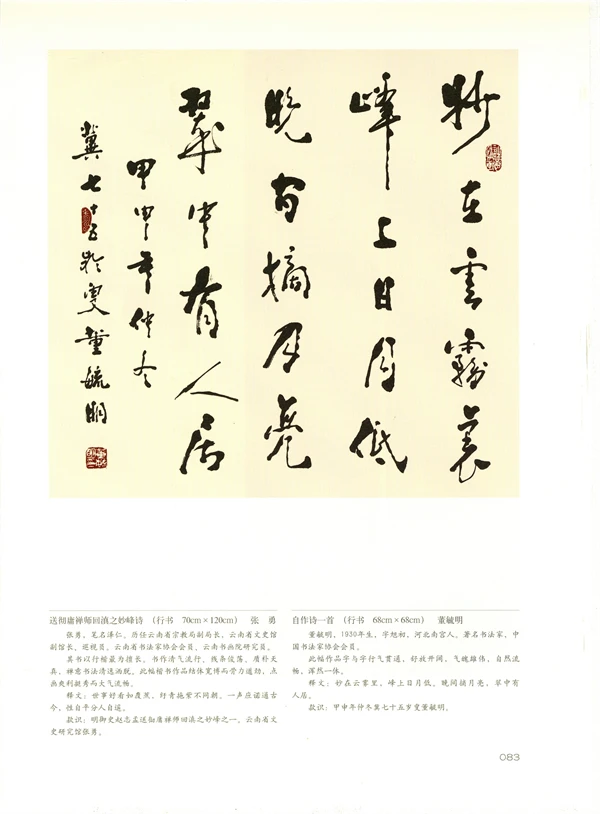 妙在雲霧裏
峰上日月低
晚间摘月亮
翠中有人居
甲申年仲冬
冀七十五岁叟董毓明
送彻庸禅师回滇之妙峰诗 （行书 70cm×120cm） 张 勇
张勇，笔名湷仁。历任云南省宗教局副局长、云南省文史馆
副馆长、巡视员。云南省书法家协会会员、云南书画院研究员。
其书以行楷最为擅长，书作清气流行、线条佼荡、质朴天
真，禅意书法清逸洒脱。此幅楷书作品结体宽博而劳力遒劲，点
画爽利挺秀而大气流畅。
释文：世事好看如履蔗，纡青拖紫不同朝。一声庄诺通古
今，性自平分人自遥。
款识：明御史赵志孟送彻庸禅师回滇之妙峰之一。云南省文
史研究馆张勇。
自作诗一首 （行书 68cm×68cm） 董毓明
董毓明，1930年生，字旭初，河北南宫人。著名书法家，中
国书法家协会会员。
此幅作品字与字行气贯通，舒放开阔，气魄雄伟，自然流
畅，浑然一体。
释文：妙在云雾里，峰上日月低。晚间摘月亮，翠中有
人居。
款识：甲申年仲冬冀七十五岁叟董毓明。
083